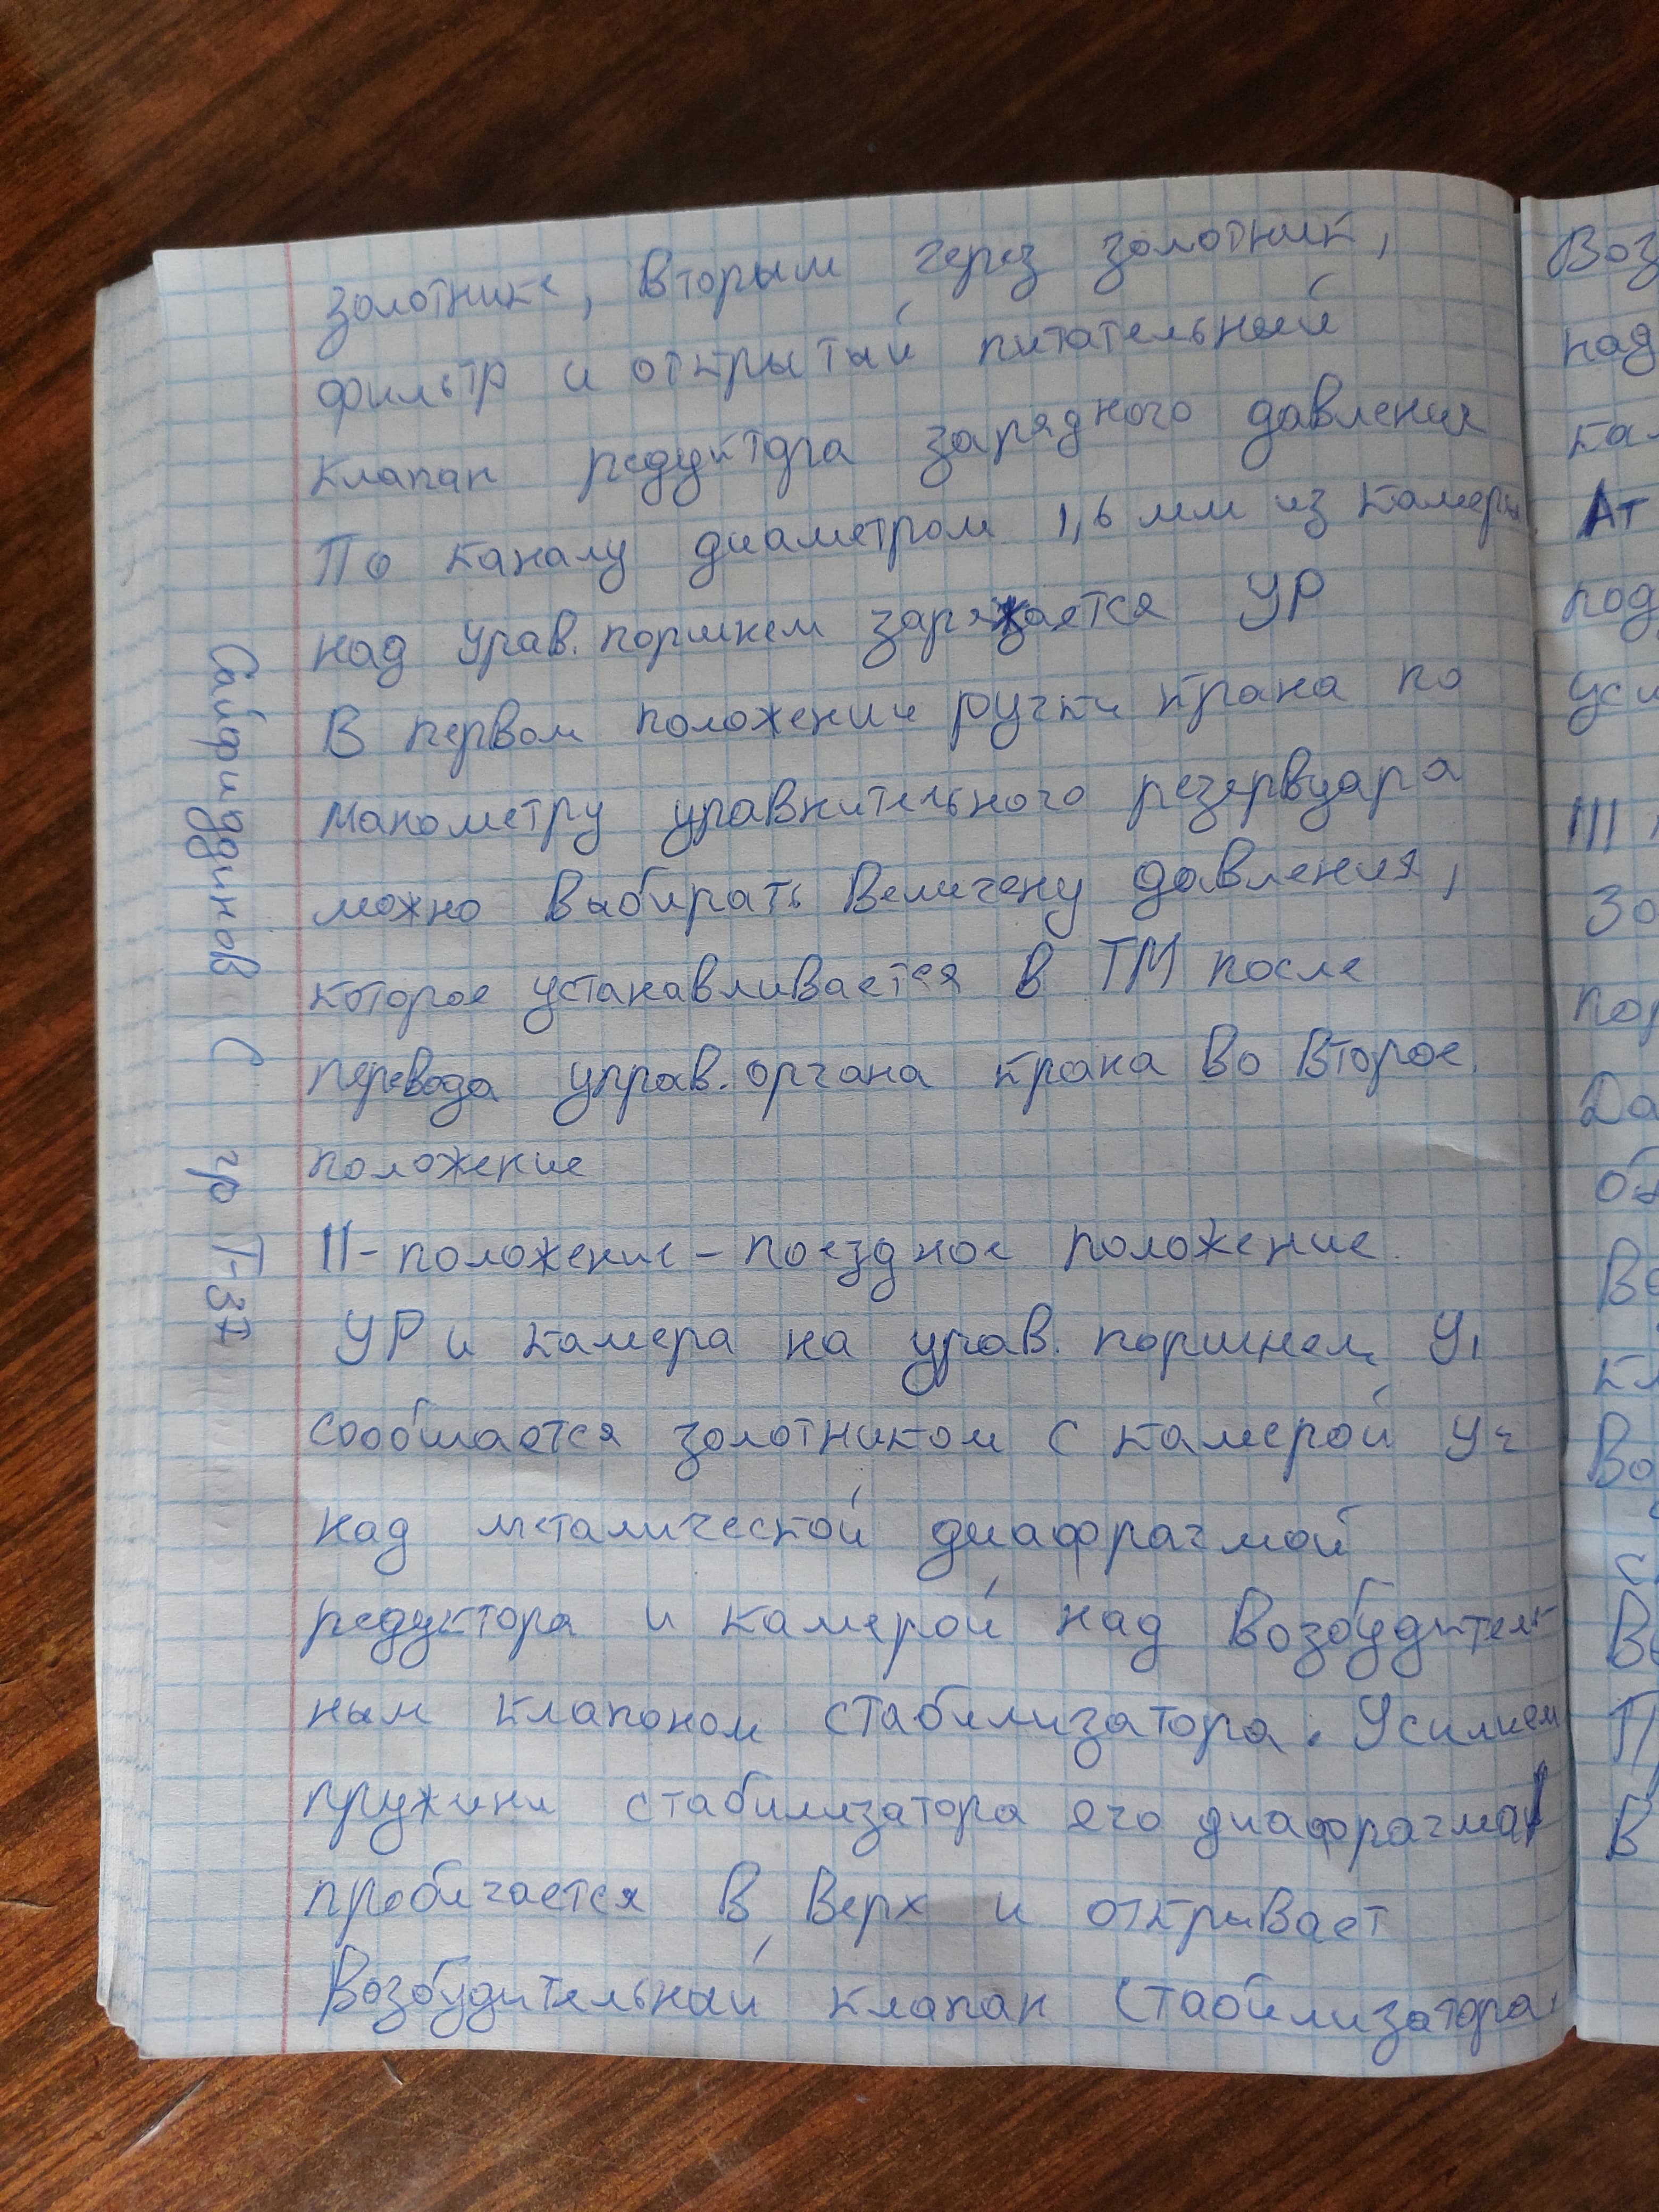 золотнике, вторым через золотник,
фильтр и открытый питательный
клапан редуктора зарядного давления
По каналу диаметром 1,6 мм из камеры
над урав. поршнем заряжается УР
В первом положении ручки крана по
манометру уравнительного резервуара
можно выбирать величену давления,
которое устанавливается в ТМ после
перевода управ. органа крана во второе
положение
II - положение - поездное положение.
УР и камера на урав. поршнем У1
сообшается золотником с камерой У2
над металической диафрагмой
редуктора и камерой над возбудитель-
ным клапоном стабилизатора. Усилием
пружини стабилизатора его диафрагма
прогибается в верх и открывает
возбудительный клапан стабилизатора.
Сайфиддинов С гр Т-37
Воз
над
кам
Ат
под
уси
III
Зо
пор
Да
об
Во
кл
Во
с
Во
П
В